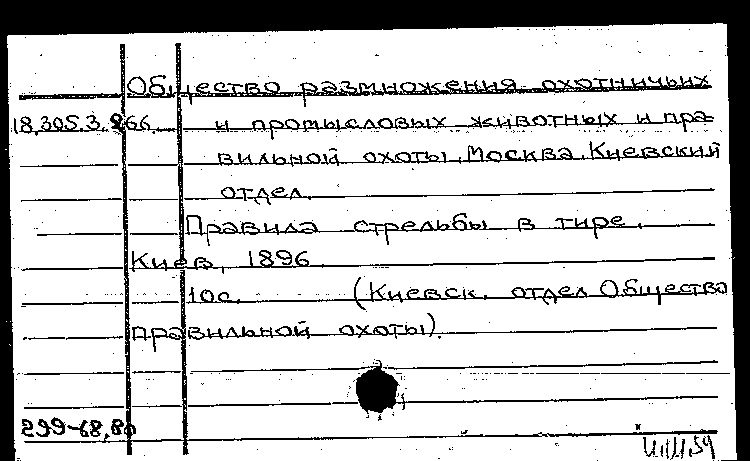 Общество размножения охотничьих
18.305.3.266. и промысловых животных и пра-
вильной охоты. Москва. Киевский
отдел.
Правила стрельбы в тире.
Киев, 1896.
10с. (Киевск. отдел Общества
правильной охоты).
299-68,80